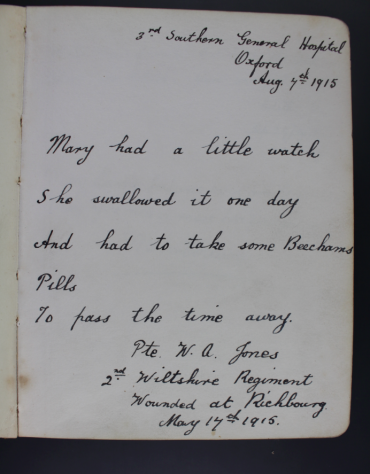 3rd Southern General Hospital
Oxford
Aug. 7th 1915
Mary had a little watch
She swallowed it one day
And had to take some Beechams
Pills
To pass the time away.
Pte. W. A. Jones
2nd Wiltshire Regiment
Wounded at Richbourg.
May 17th 1915.